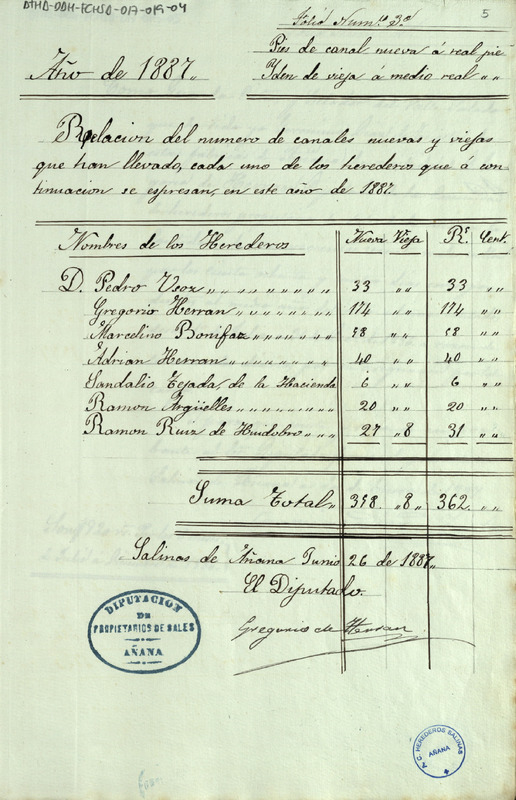 ATHA-DDH-FCHSA-017-019-04
Folio Num.º 3º
5
Año de 1887,,
Pies de canal nueva á real pie
Yden de vieja á medio real ,, ,,
Relacion del numero de canales nuevas y viejas
que han llevado, cada uno de los herederos que á con-
tinuacion se espresan, en este año de 1887.
Nombres de los Herederos Nueva Vieja Rs. Cent.
D. Pedro ,, ,, ,, ,, ,, ,, ,, 33 ,, ,, 33 ,, ,,
Gregorio Herran ,, ,, ,, ,, ,, ,, 174 ,, ,, 174 ,, ,,
Marcelino Bonifaz ,, ,, ,, ,, ,, 58 ,, ,, 58 ,, ,,
Adrian Herran ,, ,, ,, ,, ,, ,, 40 ,, ,, 40 ,, ,,
Sandalio Tejada, de la Hacienda 6 ,, ,, 6 ,, ,,
Ramon Argüelles ,, ,, ,, ,, ,, ,, 20 ,, ,, 20 ,, ,,
Ramon Ruiz de Huidobro ,, ,, ,, 27 ,, 8 31 ,, ,,
Suma Total ,, 358. ,, 8 ,, 362. ,, ,,
Salinas de Añana Junio 26 de 1887,,
El Diputado.
Gregorio de Herran
DIPUTACION
DE
PROPIETARIOS DE SALES
AÑANA
A. C. HEREDEROS SALINAS
AÑANA